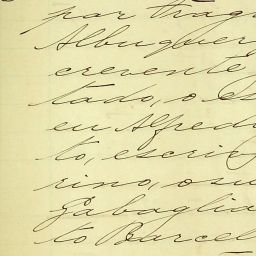 por trag
Albuquer
crevente
tado, o es
eu Alfred
to, escriv
rino, o su
Gabaglia
to Barcel